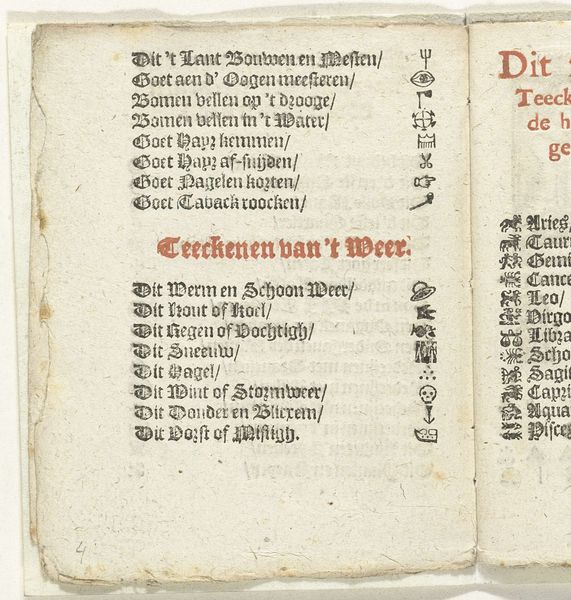 Dit 't Lant Bouwen en Mesten/
Goet aen d' Oogen meesteren/
Bomen vellen op 't drooge/
Bomen vellen in 't Water/
Goet Hayr kemmen/
Goet Hayr af-snijden/
Goet Nagelen korten/
Goet Taback roocken/
Teeckenen van 't Weer.
Dit Werm en Schoon Weer/
Dit Kout of Koel/
Dit Regen of Vochtigh/
Dit Sneeuw/
Dit Hagel/
Dit Wint of Stormweer/
Dit Donder en Blixem/
Dit Vorst of Mistigh.
4
Dit
Teeck
de h
ge
Aries/
Tauru
Gemi
Cance
Leo/
Virgo
Libra
Scho
Sagit
Capri
Aqua
Pisce